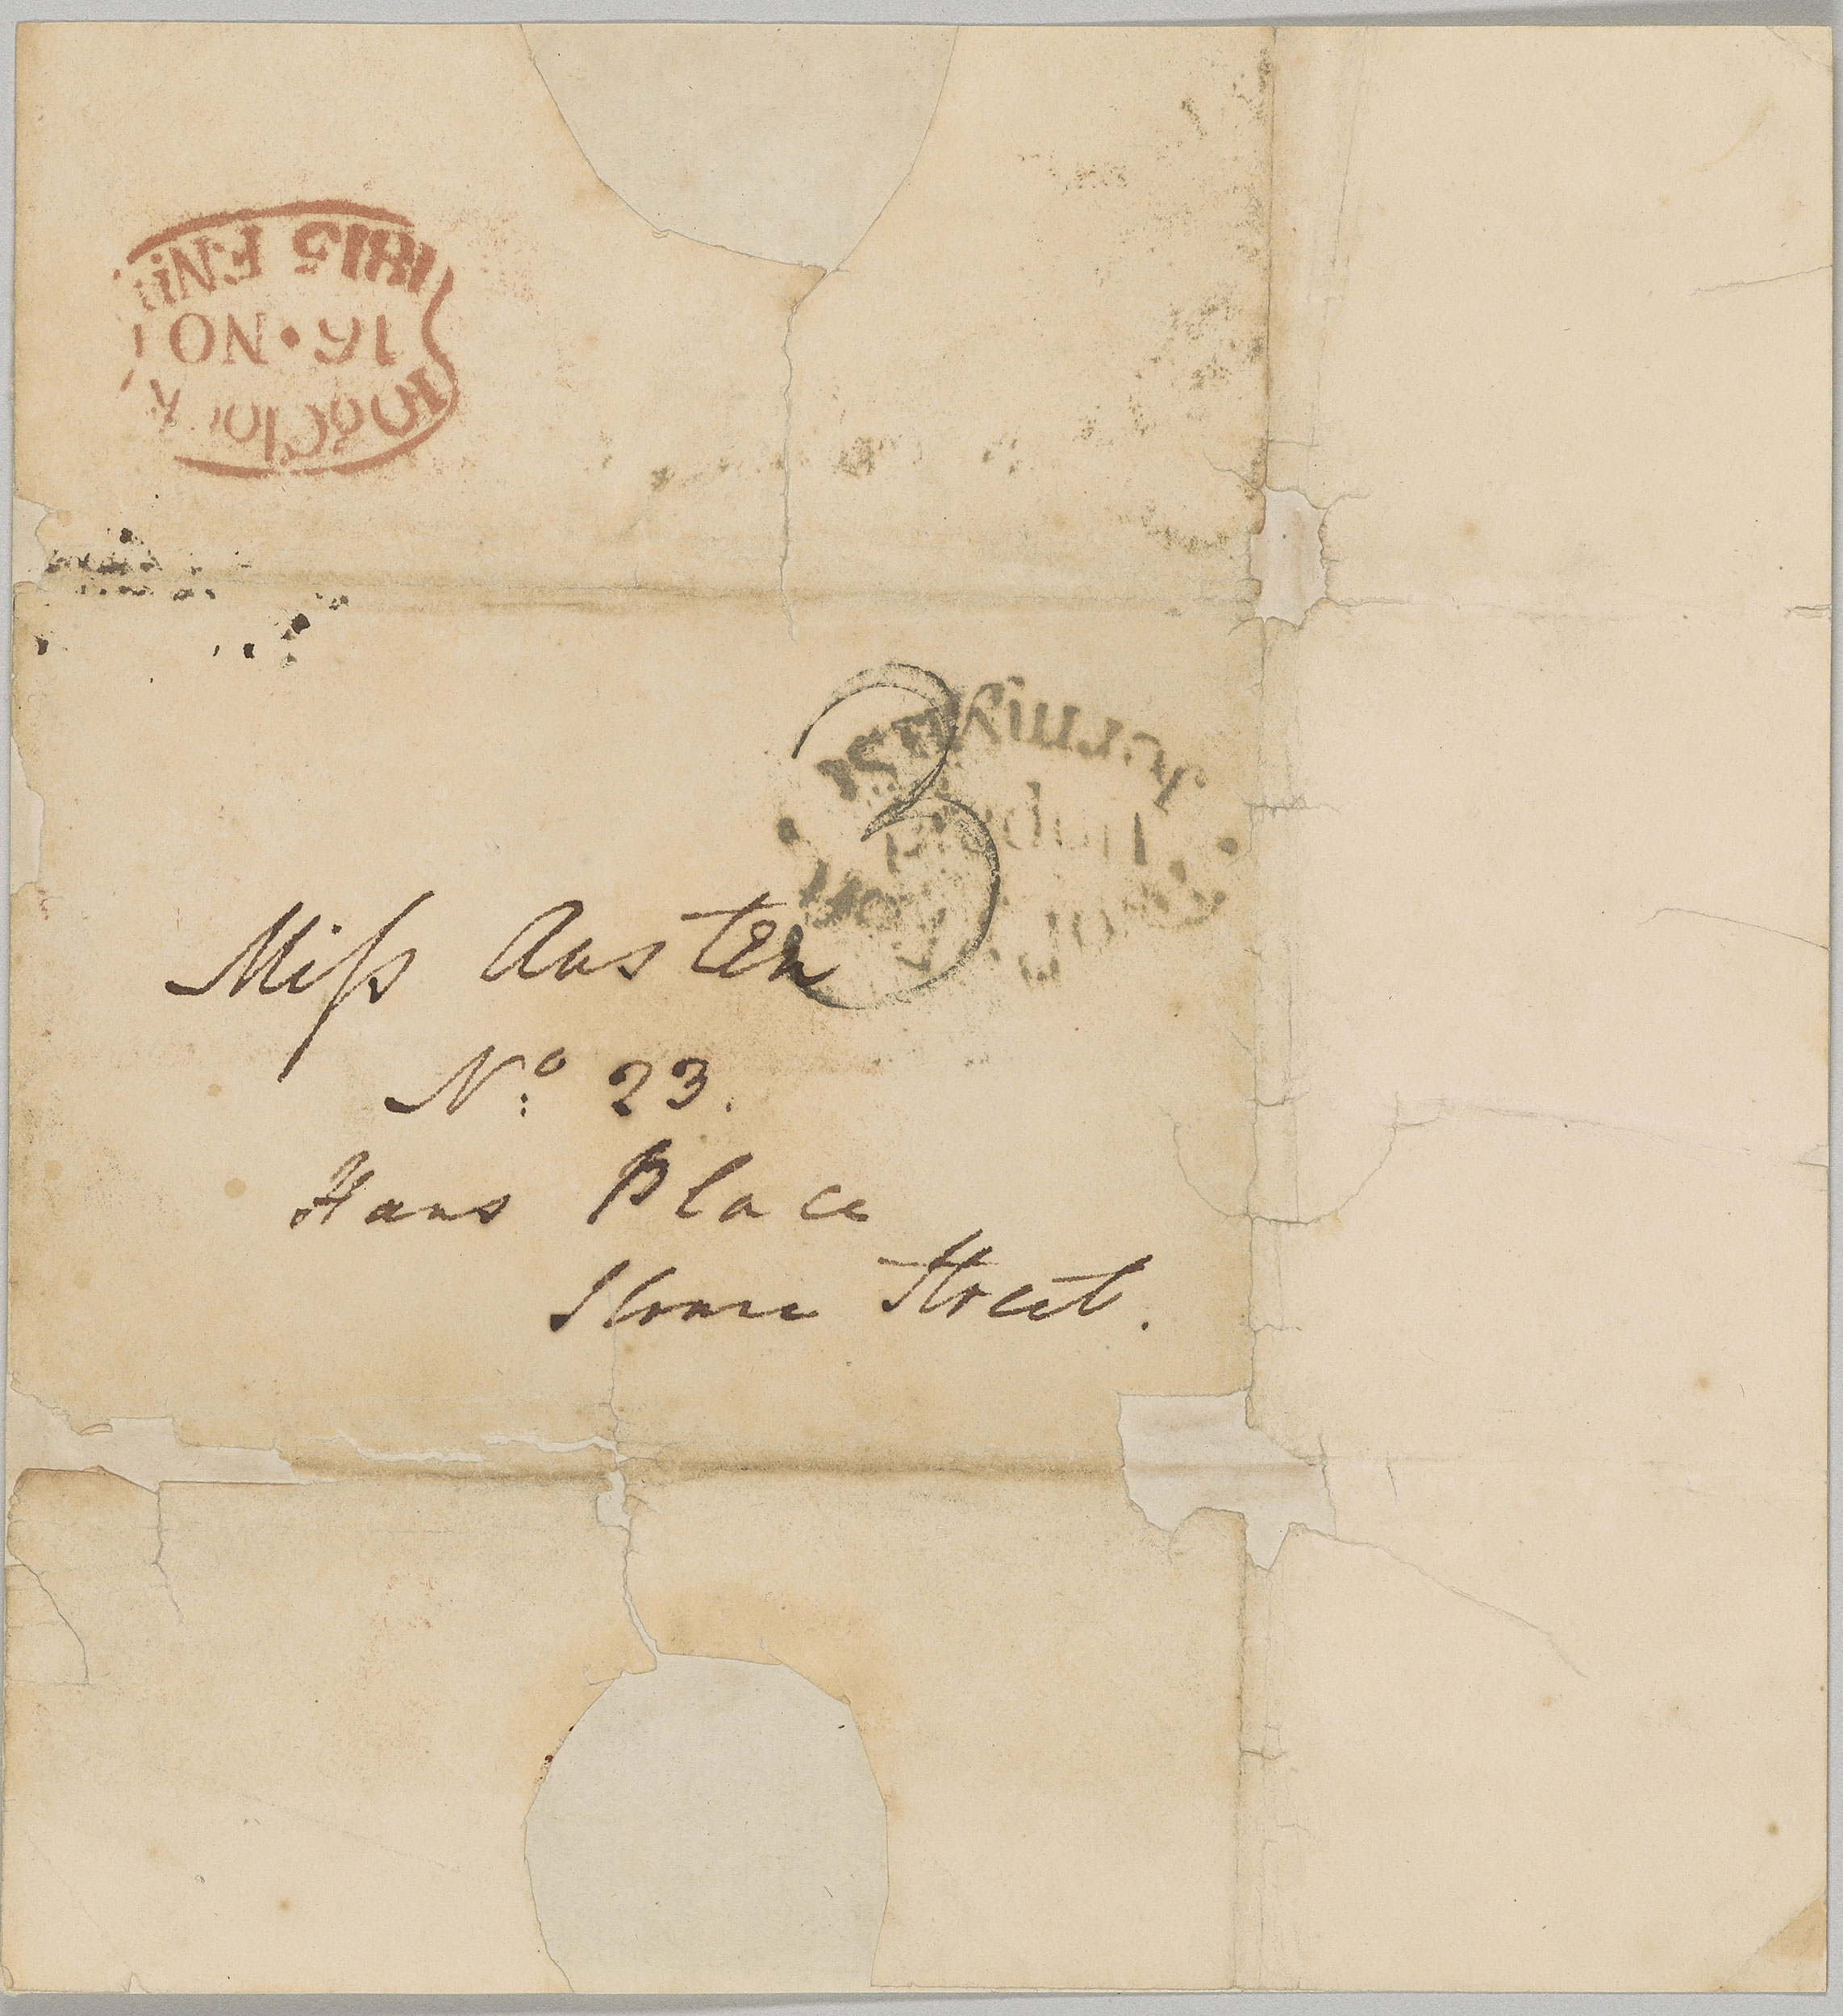 10 o'Clock
16 • NO
1815 F.Nn
3
Unpaid
Miſs Austen
Nº: 23.
Hans Place
Sloane Street.